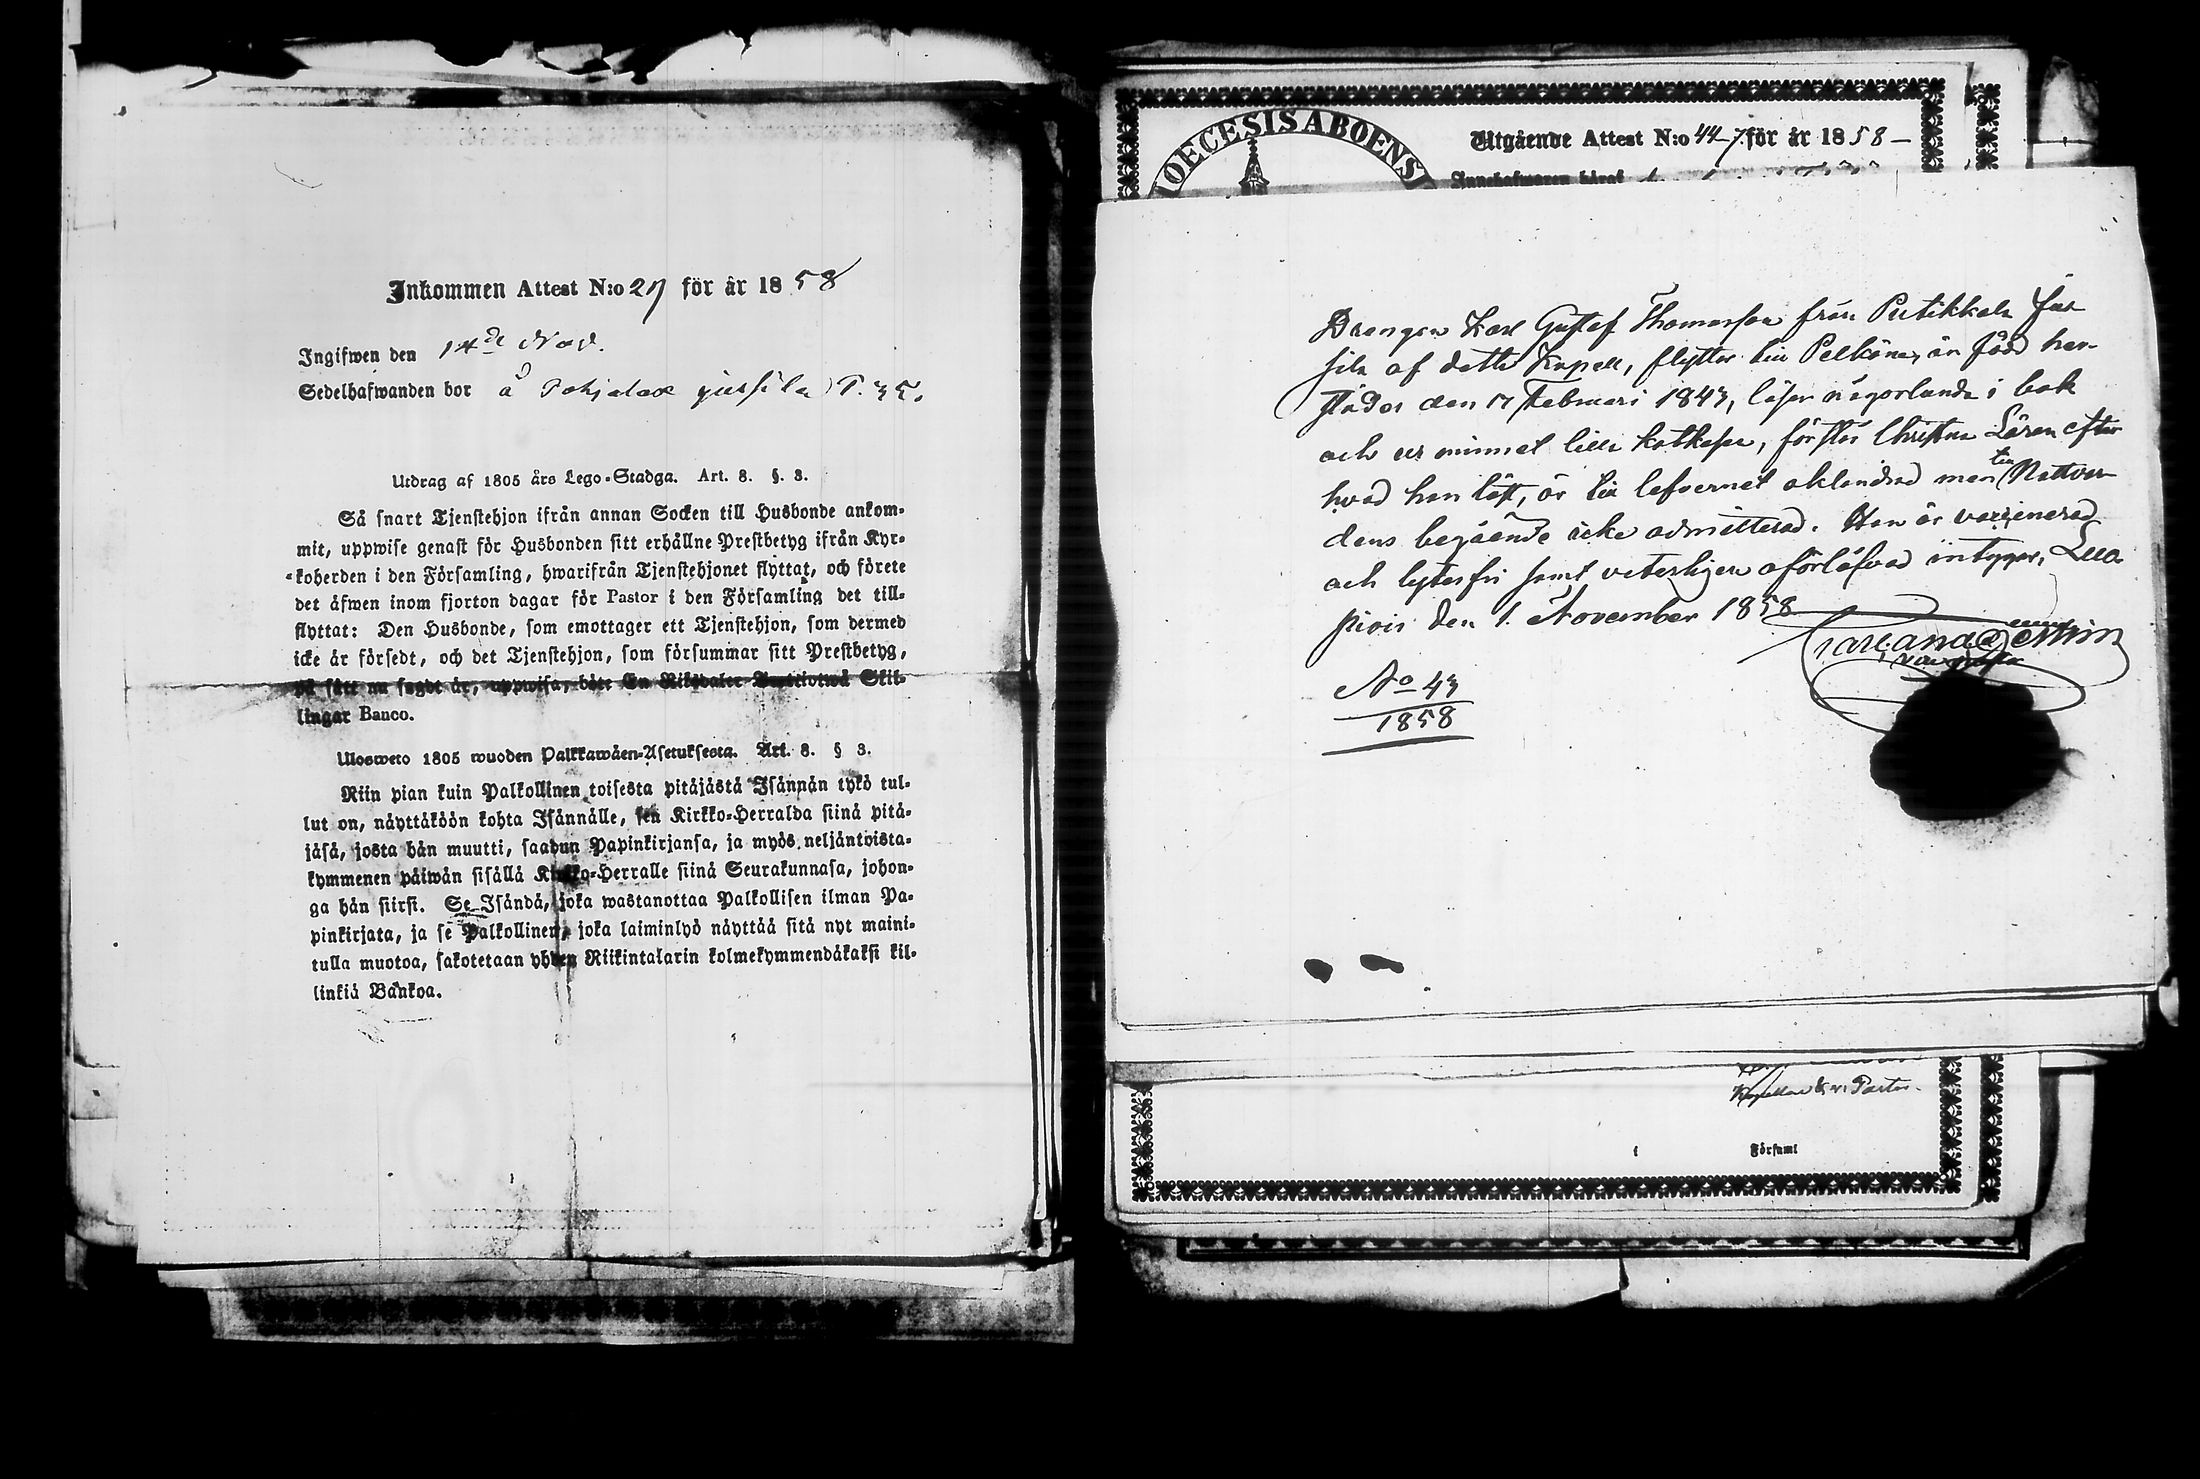 Inkommen Attest N:o 27 för år 1858
Ingifwen den 14de Nov.
Sedelhafwanden bor å Pohjalax jussila P. 35.
Utdrag af 1805 års Lego-Stadga. Art. 8. §. 3.
Så snart Tjenstehjon ifrån annan Socken till Husbonde ankom-
mit, uppwise genast för Husbonden sitt erhållne Prestbetyg ifrån Kyr-
koherden i den Församling, hwarifrån Tjenstehjonet flyttat, och förete
det äfwen inom fjorton dagar för Pastor i den Församling det till-
flyttat: Den Husbonde, som emottager ett Tjenstehjon, som dermed
icke är försedt, och det Tjenstehjon, som försummar sitt Prestbetyg,
på sätt nu sagdt är, uppwisa, böte En Riksdaler Trettiotwå Skil-
lingar Banco.
Ulosweto 1805 wuoden Palkkawäen-Asetuksesta. Art. 8. § 3.
Niin pian kuin Palkollinen toisesta pitäjästä Isännän tykö tul-
lut on, näyttäköön kohta Isännälle, sen Kirkko-Herralda siinä pitä-
jäsä, josta hän muutti, saadun Papinkirjansa, ja myös neljäntoista-
kymmenen päiwän sisällä Kirkko-Herralle siinä Seurakunnasa, johon-
ga hän siirsi. Se Isändä, joka wastanottaa Palkollisen ilman Pa-
pinkirjata, ja se Palkollinen, joka laiminlyö näyttää sitä nyt maini-
tulla muotoa, sakotetaan yhden Riikintalarin kolmekymmendäkaksi kil-
linkiä Bankoa.
DIOECESIS ABOENSI
Utgående Attest N:o 44 för år 1858
Innehafwaren häraf
Drengen Karl Gustaf Thomasson från Putikkala Jus-
sila af detta Kapell, flyttar till Pelkäne, är född her-
städes den 17 Februari 1843, läser någorlunda i bok
och ur minnet lilla katkesen, förstår Christna Läran efter
hvad han läst, är till lefvernet oklandrad men till Nattvar-
dens begående icke admitterad. Han är vaccinerad
och lytesfri samt veterligen oförlofvad intygar, Luo-
piois den 1. November 1858
No 43
1858
Kapellan & v. Pastor.
i Församl